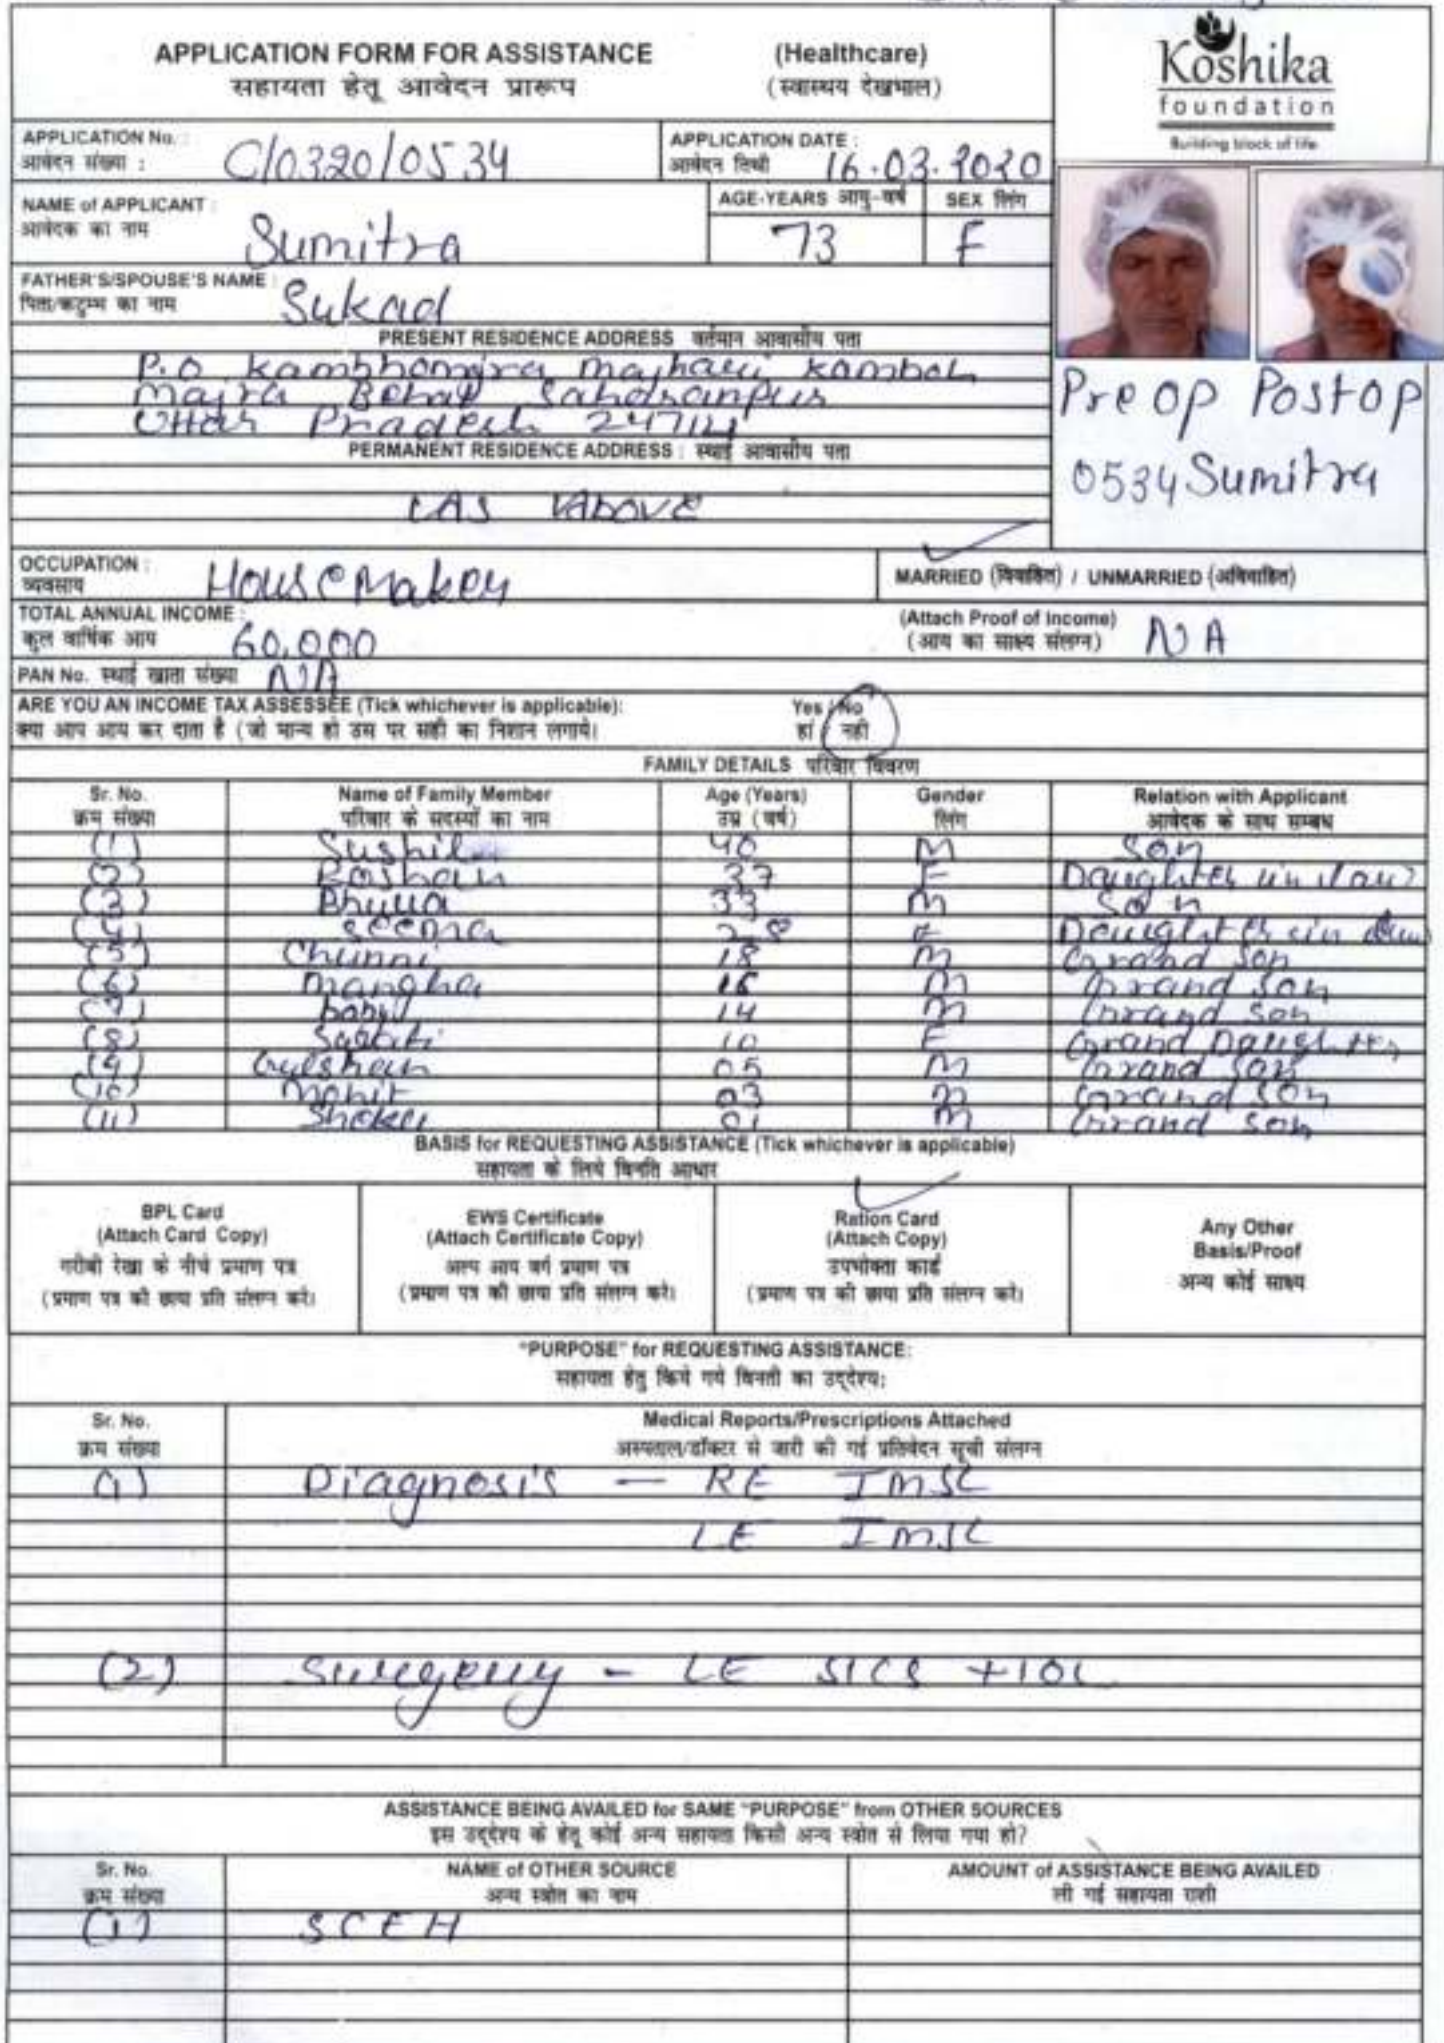 APPLICATION FORM FOR ASSISTANCE (Healthcare)
सहायता हेतू आवेदन प्रारूप (स्वास्थय देखभाल)
Koshika
foundation
Building block of life
APPLICATION No. :
आवेदन संख्या : C/0320/0534
APPLICATION DATE :
आवेदन तिथी 16.03.2020
NAME of APPLICANT :
आवेदक का नाम Sumitra
AGE-YEARS आयु-वर्ष 73
SEX लिंग F
FATHER'S/SPOUSE'S NAME :
पिता/कटुम्भ का नाम Sukad
PRESENT RESIDENCE ADDRESS वर्तमान आवासीय पता
P.O
Majra Behat
Uttar Pradesh
PERMANENT RESIDENCE ADDRESS : स्थाई आवासीय पता
As Above
Pre op Post op
0534 Sumitra
OCCUPATION :
व्यवसाय House Maker
MARRIED (विवाहित) / UNMARRIED (अविवाहित)
TOTAL ANNUAL INCOME :
कुल वार्षिक आय 60,000
(Attach Proof of Income)
(आय का साक्ष्य संलग्न) NA
PAN No. स्थाई खाता संख्या N/A
ARE YOU AN INCOME TAX ASSESSEE (Tick whichever is applicable): Yes / No
क्या आप आय कर दाता है (जो मान्य हो उस पर सही का निशान लगाये। हां / नही
FAMILY DETAILS परिवार विवरण
Sr. No. Name of Family Member Age (Years) Gender Relation with Applicant
क्रम संख्या परिवार के सदस्यों का नाम उम्र (वर्ष) लिंग आवेदक के साथ सम्बध
(1) Sushil 40 M Son
(2) Roshan 37 F Daughter in law
(3) 33 M Son
(4) Seema 28 F Daughter in law
(5) Chunni 18 M Grand Son
(6) Mangha 16 M Grand Son
(7) 14 M Grand Son
(8) 10 F Grand Daughter
(9) Gulshan 05 M Grand Son
(10) Mohit 03 M Grand Son
(11) 01 M Grand Son
BASIS for REQUESTING ASSISTANCE (Tick whichever is applicable)
सहायता के लिये विनति आधार
BPL Card
(Attach Card Copy)
गरीबी रेखा के नीचे प्रमाण पत्र
(प्रमाण पत्र की छाया प्रति संलग्न करे।
EWS Certificate
(Attach Certificate Copy)
अल्प आय वर्ग प्रमाण पत्र
(प्रमाण पत्र की छाया प्रति संलग्न करे।
Ration Card
(Attach Copy)
उपभोक्ता कार्ड
(प्रमाण पत्र की छाया प्रति संलग्न करे।
Any Other
Basis/Proof
अन्य कोई साक्ष्य
"PURPOSE" for REQUESTING ASSISTANCE:
सहायता हेतु किये गये विनती का उद्देश्य:
Sr. No. Medical Reports/Prescriptions Attached
क्रम संख्या अस्पताल/डॉक्टर से जारी की गई प्रतिवेदन सूची संलग्न
(1) Diagnosis - RE IMSC
LE IMSC
(2) Surgery - LE SICS +IOL
ASSISTANCE BEING AVAILED for SAME "PURPOSE" from OTHER SOURCES
इस उद्देश्य के हेतू कोई अन्य सहायता किसी अन्य स्त्रोत से लिया गया हो?
Sr. No. NAME of OTHER SOURCE AMOUNT of ASSISTANCE BEING AVAILED
क्रम संख्या अन्य स्त्रोत का नाम ली गई सहायता राशी
(1) SCEH